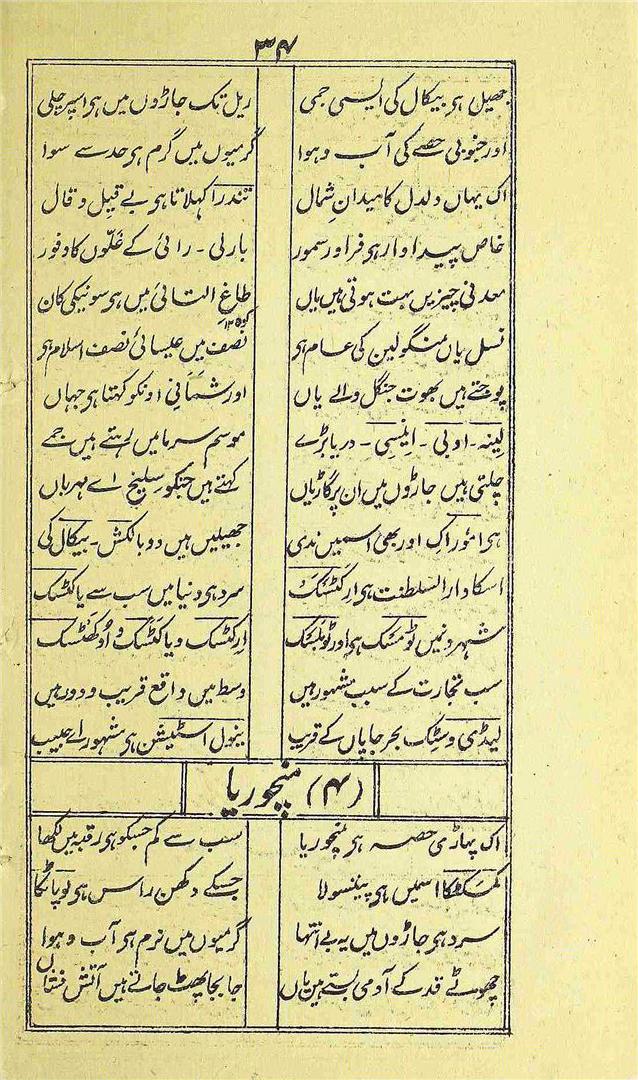 ۳۴
جھیل ہر بیکال کی ایسی جمی ریل تک جاڑوں میں ہر اسپر چلی
اور جنوبی حصے کی آب و ہوا گرمیوں میں گرم ہر حد سے سوا
اک یہاں دلدل کا میدان شمال تندرا کہلاتا ہر بے قیل و قال
خاص پیداوار ہر فر اور سمور بارلی - رائی کے غلّوں کا وفور
معدنی چیزیں بہت ہوتی ہیں یاں طاغ التائی میں ہر سونیکی کان
نسل یاں منگولین کی عام ہر نصف میں عیسائی نصف اسلام ہر
پوجتے ہیں بھوت جنگل والے یاں اور شمانی اونکو کہتا ہر جہاں
لینہ - اوبی - اینسی - دریا بڑے موسم سرما میں رہتے ہیں جمے
چلتی ہیں جاڑوں میں ان پر گاڑیاں کہتے ہیں جنکو سلیج اے مہرباں
ہر امور اک اور بھی اسمیں ندی جھیلیں ہیں دو بالکش - بیکال کی
اسکا دار السلطنت ہر ارکٹسک سرد ہر دنیا میں سب سے یاکٹسک
شہرونمیں ٹومسک ہر اور ٹوبلسک ارکٹسک و یاکٹسک و اوکھٹسک
سب تجارت کے سبب مشہور ہیں وسط میں واقع قریب و دور ہیں
لیڈی وسٹک بحر جاپاں کے قریب ریل اسٹیشن ہر مشہور اے حبیب
(۴) منچوریا
اک پہاڑی حصہ ہر منچوریا سب سے کم جسکو ہر رقبہ میں لکھا
کمسکٹکا اسمیں ہر پیننسولا جسکے دکھن راس ہر لوپاٹکا
سرد ہر جاڑوں میں یہ بے انتہا گرمیوں میں نرم ہر آب و ہوا
چھوٹے قد کے آدمی بستے ہیں یاں جا بجا پھٹ جاتے ہیں آتش فشاں